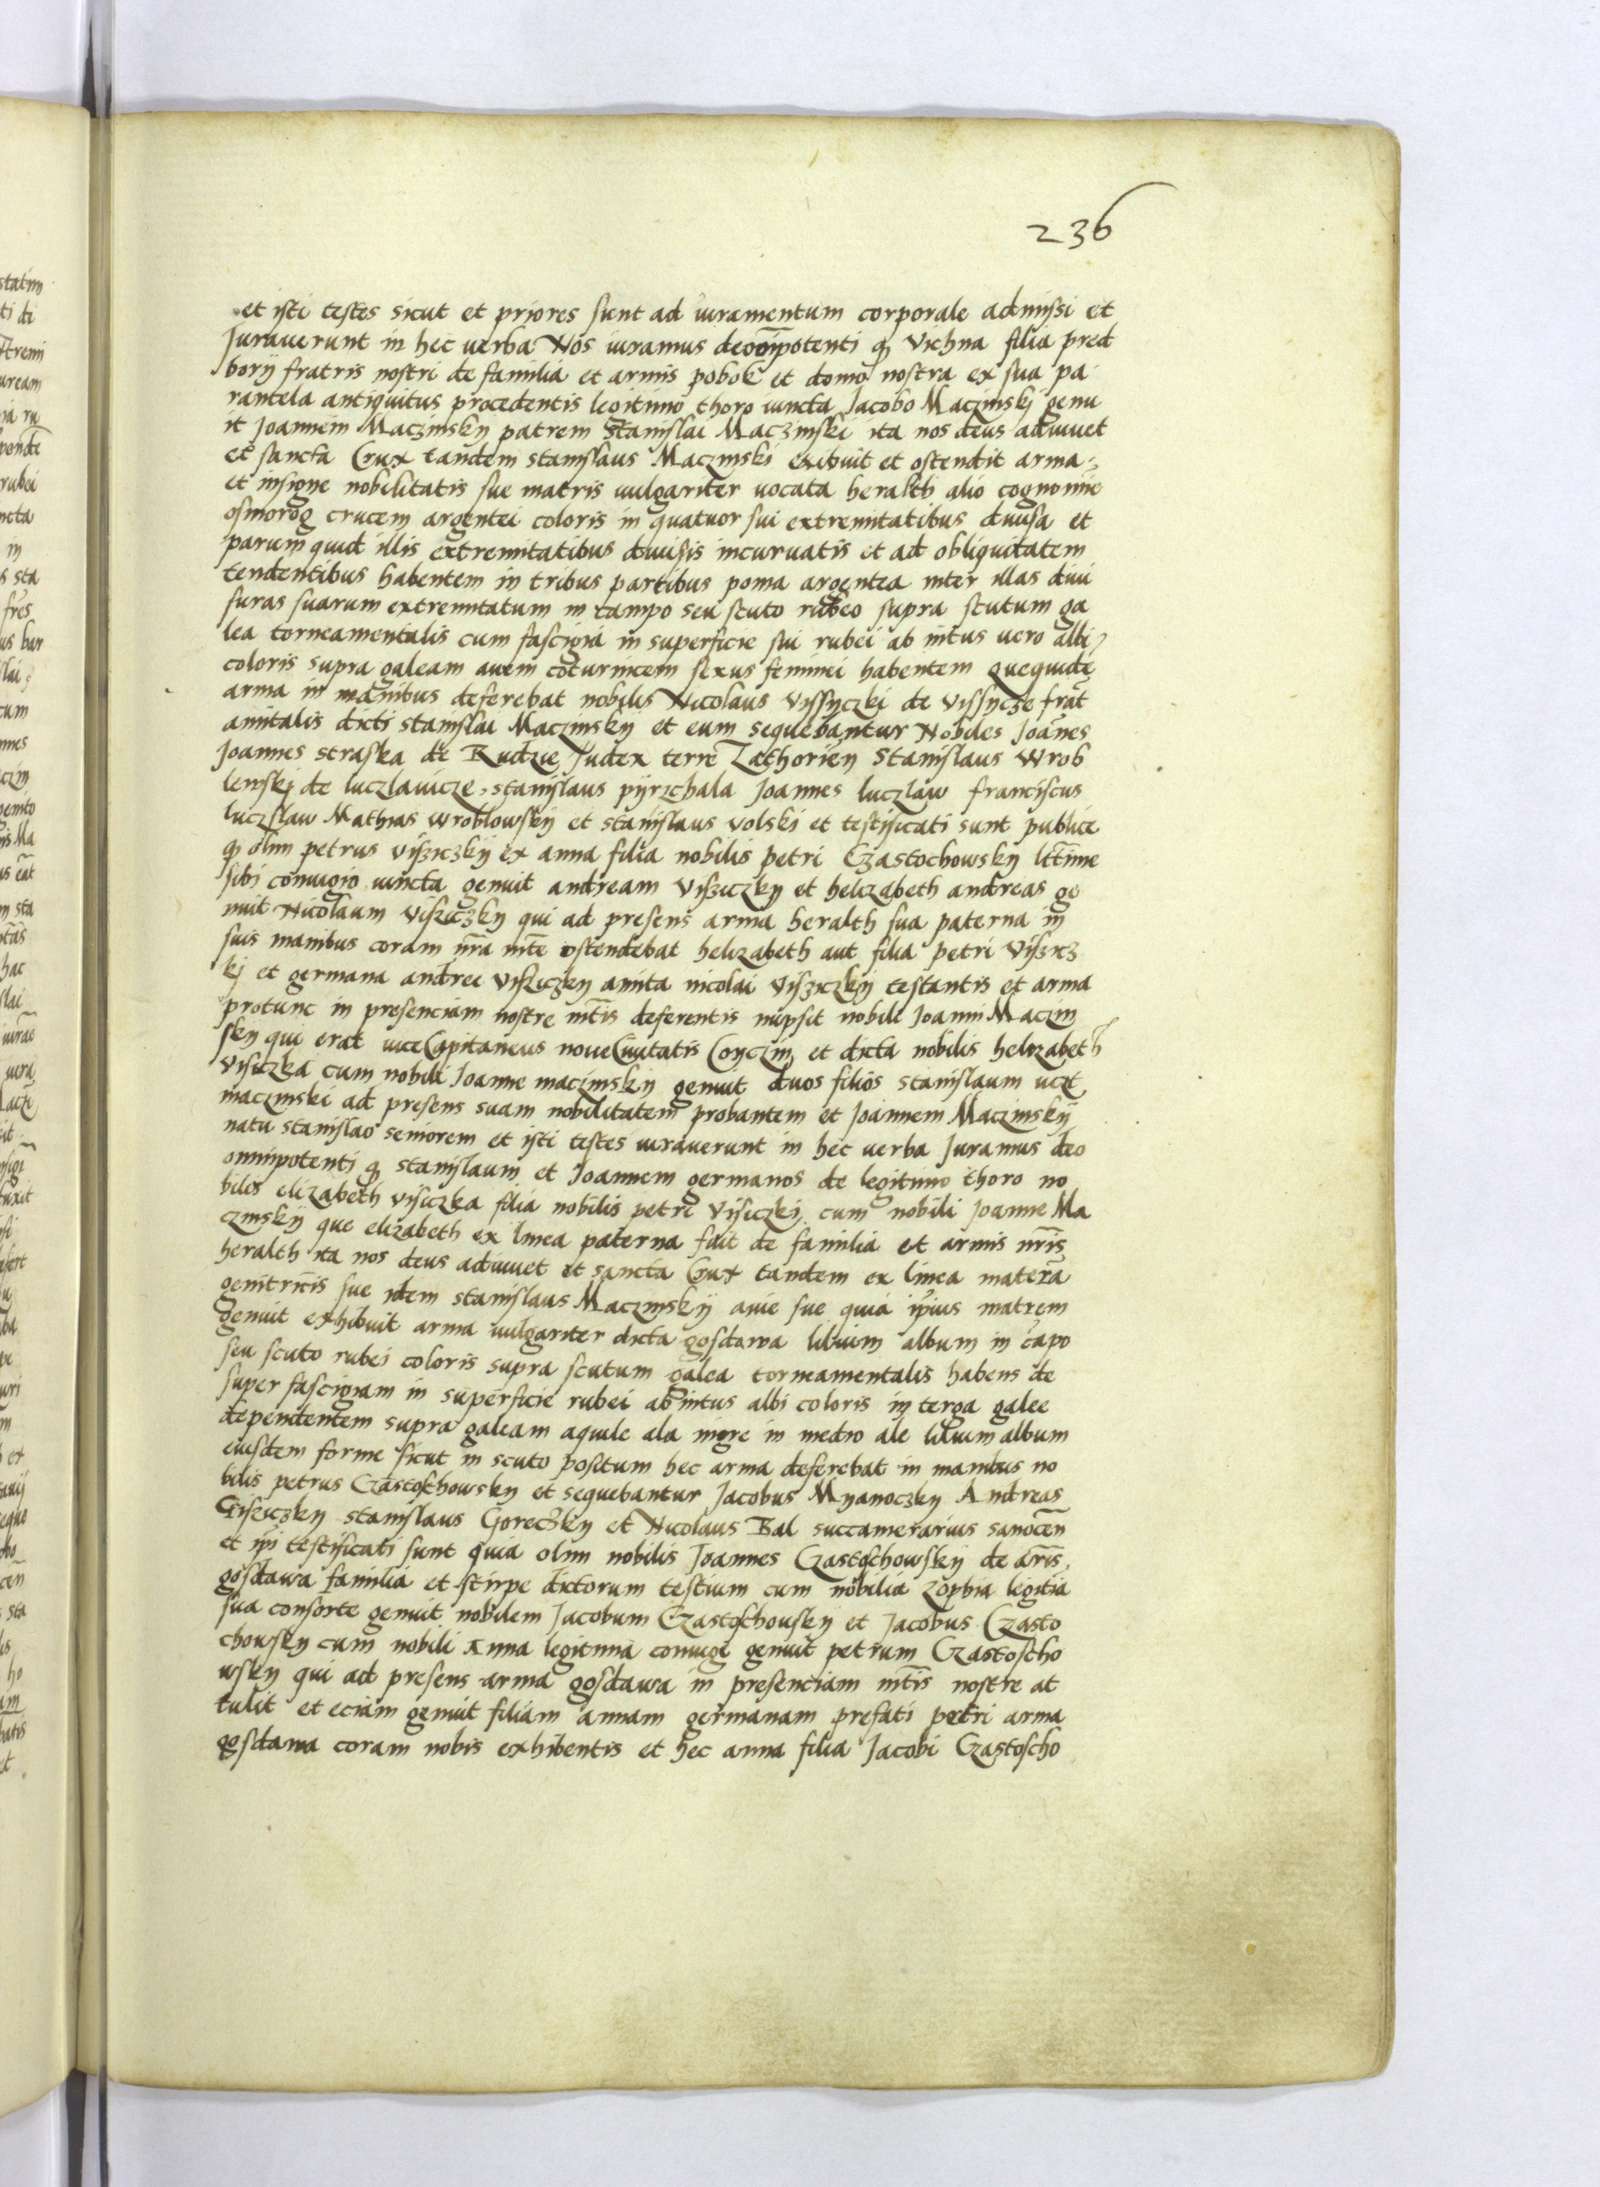 236
et isti testes sicut et priores sunt ad iuramentum corporale admissi et
Iurauerunt in hec uerba Nos iuramus deo o̅i̅potenti q̨ Vichna filia pred
borij fratris nostri de familia et armis pobok et domo nostra ex sua pa
rantela antiquitus procedentis legitimo thoro iuncta Iacobo Maczinskj genu
it Joannem Maczinsky patrem Stanislai Maczinski ita nos deus adiuuet
et sancta Crux tandem stanislaus Maczinski exibuit et ostendit arma
et insigne nobilitatis sue matris uulgariter uocata heralth alio cognomine
osmorog crucem argentei coloris in quatuor sui extremitatibus diuisa et
parum quid illis extremitatibus diuisis incuruatis et ad obliquitatem
tendentibus habentem in tribus partibus poma argentea inter illas diui
suras suarum extremitatum in campo seu scuto rubeo supra scutum ga
lea torneamentalis cum fascigia in superficie sui rubei ab intus uero albi
coloris supra galeam auem coturnicem sexus feminei habentem quequide̅
arma in manibus deferebat nobilis Nicolaus Vissyczki de Vissycze frat̅
amitalis dicti stanislai Maczinsky et eum sequebantur Nobiles Joa̅nes
Joannes straska de Rudzie Judex terre Zathorien̅ Stanislaus Wrob
lenskj de luczlauicze, stanislaus pyrzchala Joannes luczlaw franciscus
luczslaw Mathias wroblowsky et stanislaus volski et testificati sunt publice
q̨ olim petrus visziczkij ex anna filia nobilis petri Czastochowsky lt̅t̅ime
sibi coniugio iuncta genuit andream visziczky et helizabeth andreas ge
nuit Nicolaum visziczky qui ad presens arma heralth sua paterna in
suis manibus coram n̅r̅a m̅t̅e ostendebat helizabeth aut filia petri Viszicz
kj et germana andree visziczky amita nicolai visziczkij testantis et arma
protunc in presenciam nostre m̅t̅is deferentis nupsit nobili Joanni Maczin
sky qui erat uiceCapitaneus noueCiuitatis Corczin et dicta nobilis helizabeth
visiczka cum nobili Joanne maczinskij genuit duos filios stanislaum uczt
maczinski ad presens suam nobilitatem probantem et Joannem Maczinskij
natu stanislao seniorem et isti testes iurauerunt in hec uerba Juramus deo
omnipotenti q̨ stanislaum et Joannem germanos de legitimo thoro no
bilis elizabeth visiczka filia nobilis petri visiczkj cum nobili Joanne Ma
czinskij que elizabeth ex linea paterna fuit de familia et armis n̅r̅is
heralth ita nos deus adiuuet et sancta Crux tandem ex linea mater̅a
genitricis sue idem stanislaus Maczinskij auie sue quia ip̅ius matrem
genuit exhibuit arma uulgariter dicta gosdawa lilium album in ca̅po
seu scuto rubei coloris supra scutum galea torneamentalis habens de
super fascigiam in superficie rubei ab intus albi coloris in terga galee
dependentem supra galeam aquile ala nigre in medio ale lilium album
eiusdem forme sicut in scuto positum hec arma deferebat in manibus no
bilis petrus Czastoschowsky et sequebantur Jacobus Myanoczky Andreas
Gisziczky stanislaus Goreczky et Nicolaus Bal succamerarius sanoce̅n
et ip̅i testificati sunt quia olim nobilis Joannes Czastoschowskij de ar̅is
gosdawa familia et stirpe dictorum testium cum nobilia zophia legitia
sua consorte genuit nobilem Jacobum Czastoschousky et Jacobus Czasto
chousky cum nobili Anna legitima coniuge genuit petrum Czastoscho
wsky qui ad presens arma gosdawa in presenciam m̅t̅is nostre at
tulit et eciam genuit filiam annam germanam prefati petri arma
gosdawa coram nobis exhibentis et hec anna filia Jacobi Czastoscho